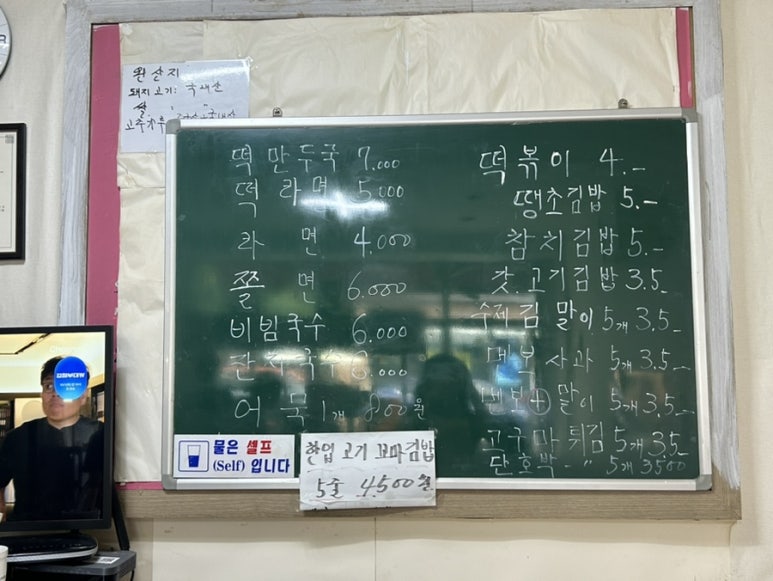 원산지
돼지고기: 국내산
쌀 : "
고추가루
떡만두국 7.000
떡라면 5.000
라면 4.000
쫄면 6.000
비빔국수 6.000
잔치국수 6.000
어묵 1개 800원
떡볶이 4.-
땡초김밥 5.-
참치김밥 5.-
갓.고기김밥 3.5.-
수제김말이 5개 3.5.-
5개 3.5.-
말이 5개 3.5.-
고구마튀김 5개 3.5.-
단호박 - " 5개 3500
물은 셀프
(Self) 입니다
한입 고기 꼬마김밥
5줄 4.500원